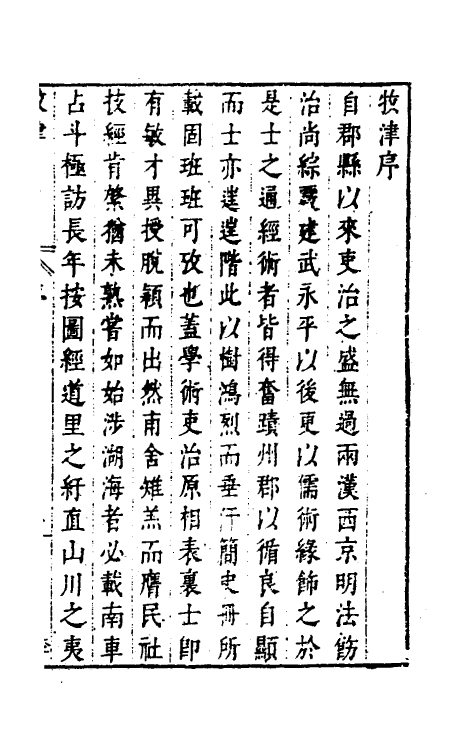 牧津序
自郡縣以來吏治之盛無過兩漢西京明法飭
治尚綜覈建武永平以後更以儒術緣飾之於
是士之通經術者皆得奮蹟州郡以循良自顯
而士亦遂遂階此以樹鴻烈而垂汗簡史冊所
載固班班可攷也蓋學術吏治原相表裏士卽
有敏才異授脫穎而出然甫舍雉羔而膺民社
技經肯綮猶未熟嘗如始涉湖海者必載南車
占斗極訪長年按圖經道里之紆直山川之夷
牧津
序
一